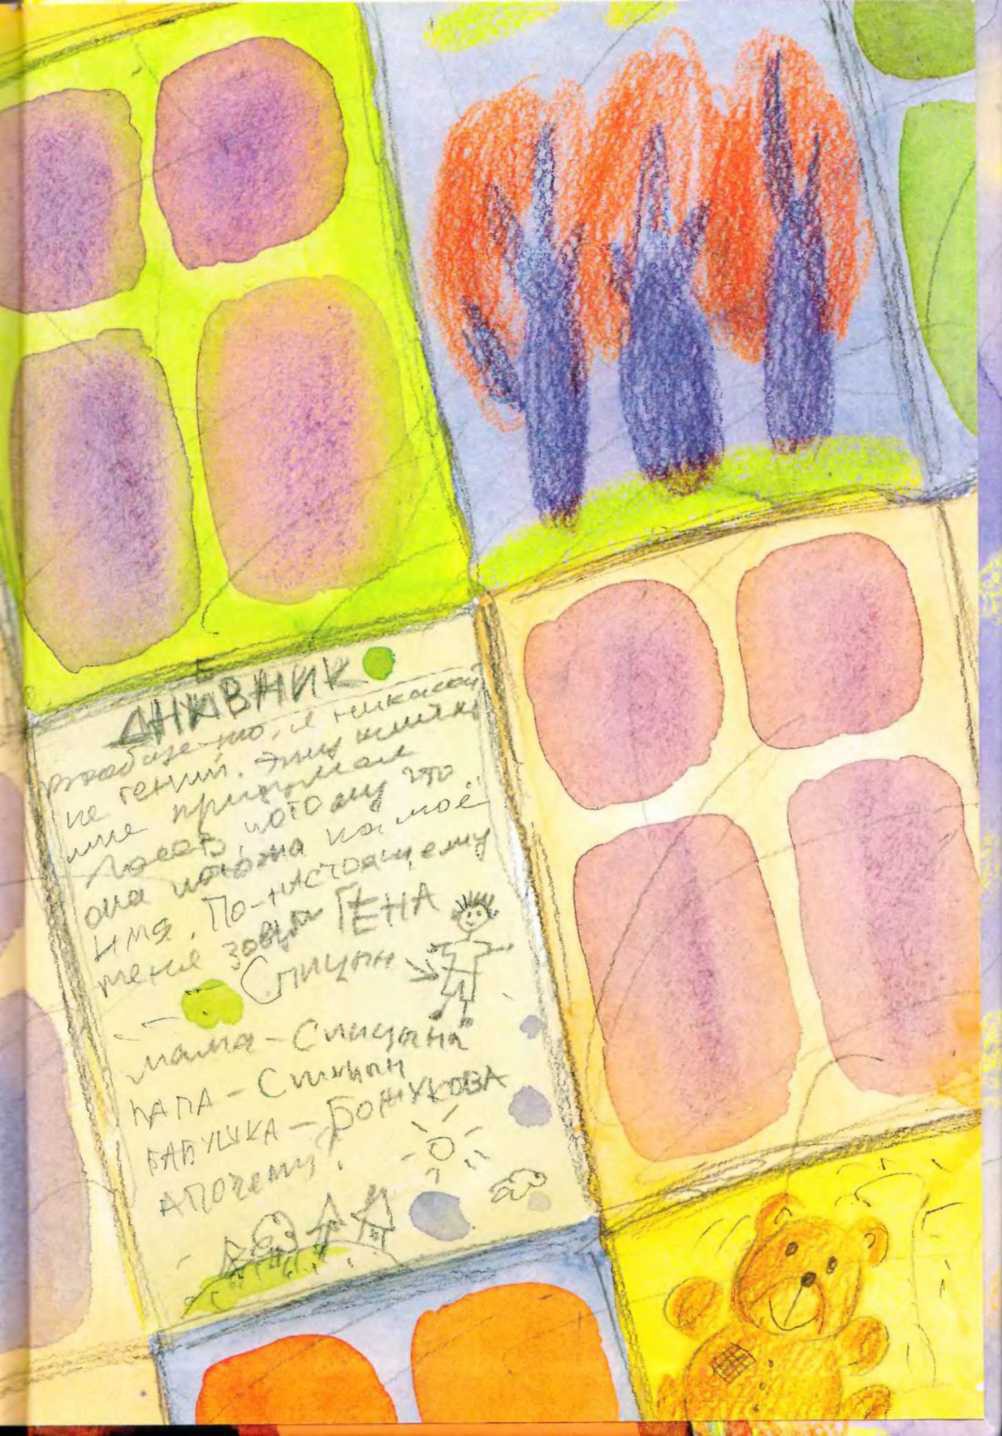 ДНЕВНИК
Вообще-то, я никакой
не гений. Эту кличку
мне придумал
Лосев, потому что
она похожа на моё
имя. По-настоящему
меня зовут ГЕНА
Спицын
мама - Спицына
ПАПА - Спицын
БАБУШКА - БОЖУКОВА
А ПОЧЕМУ?